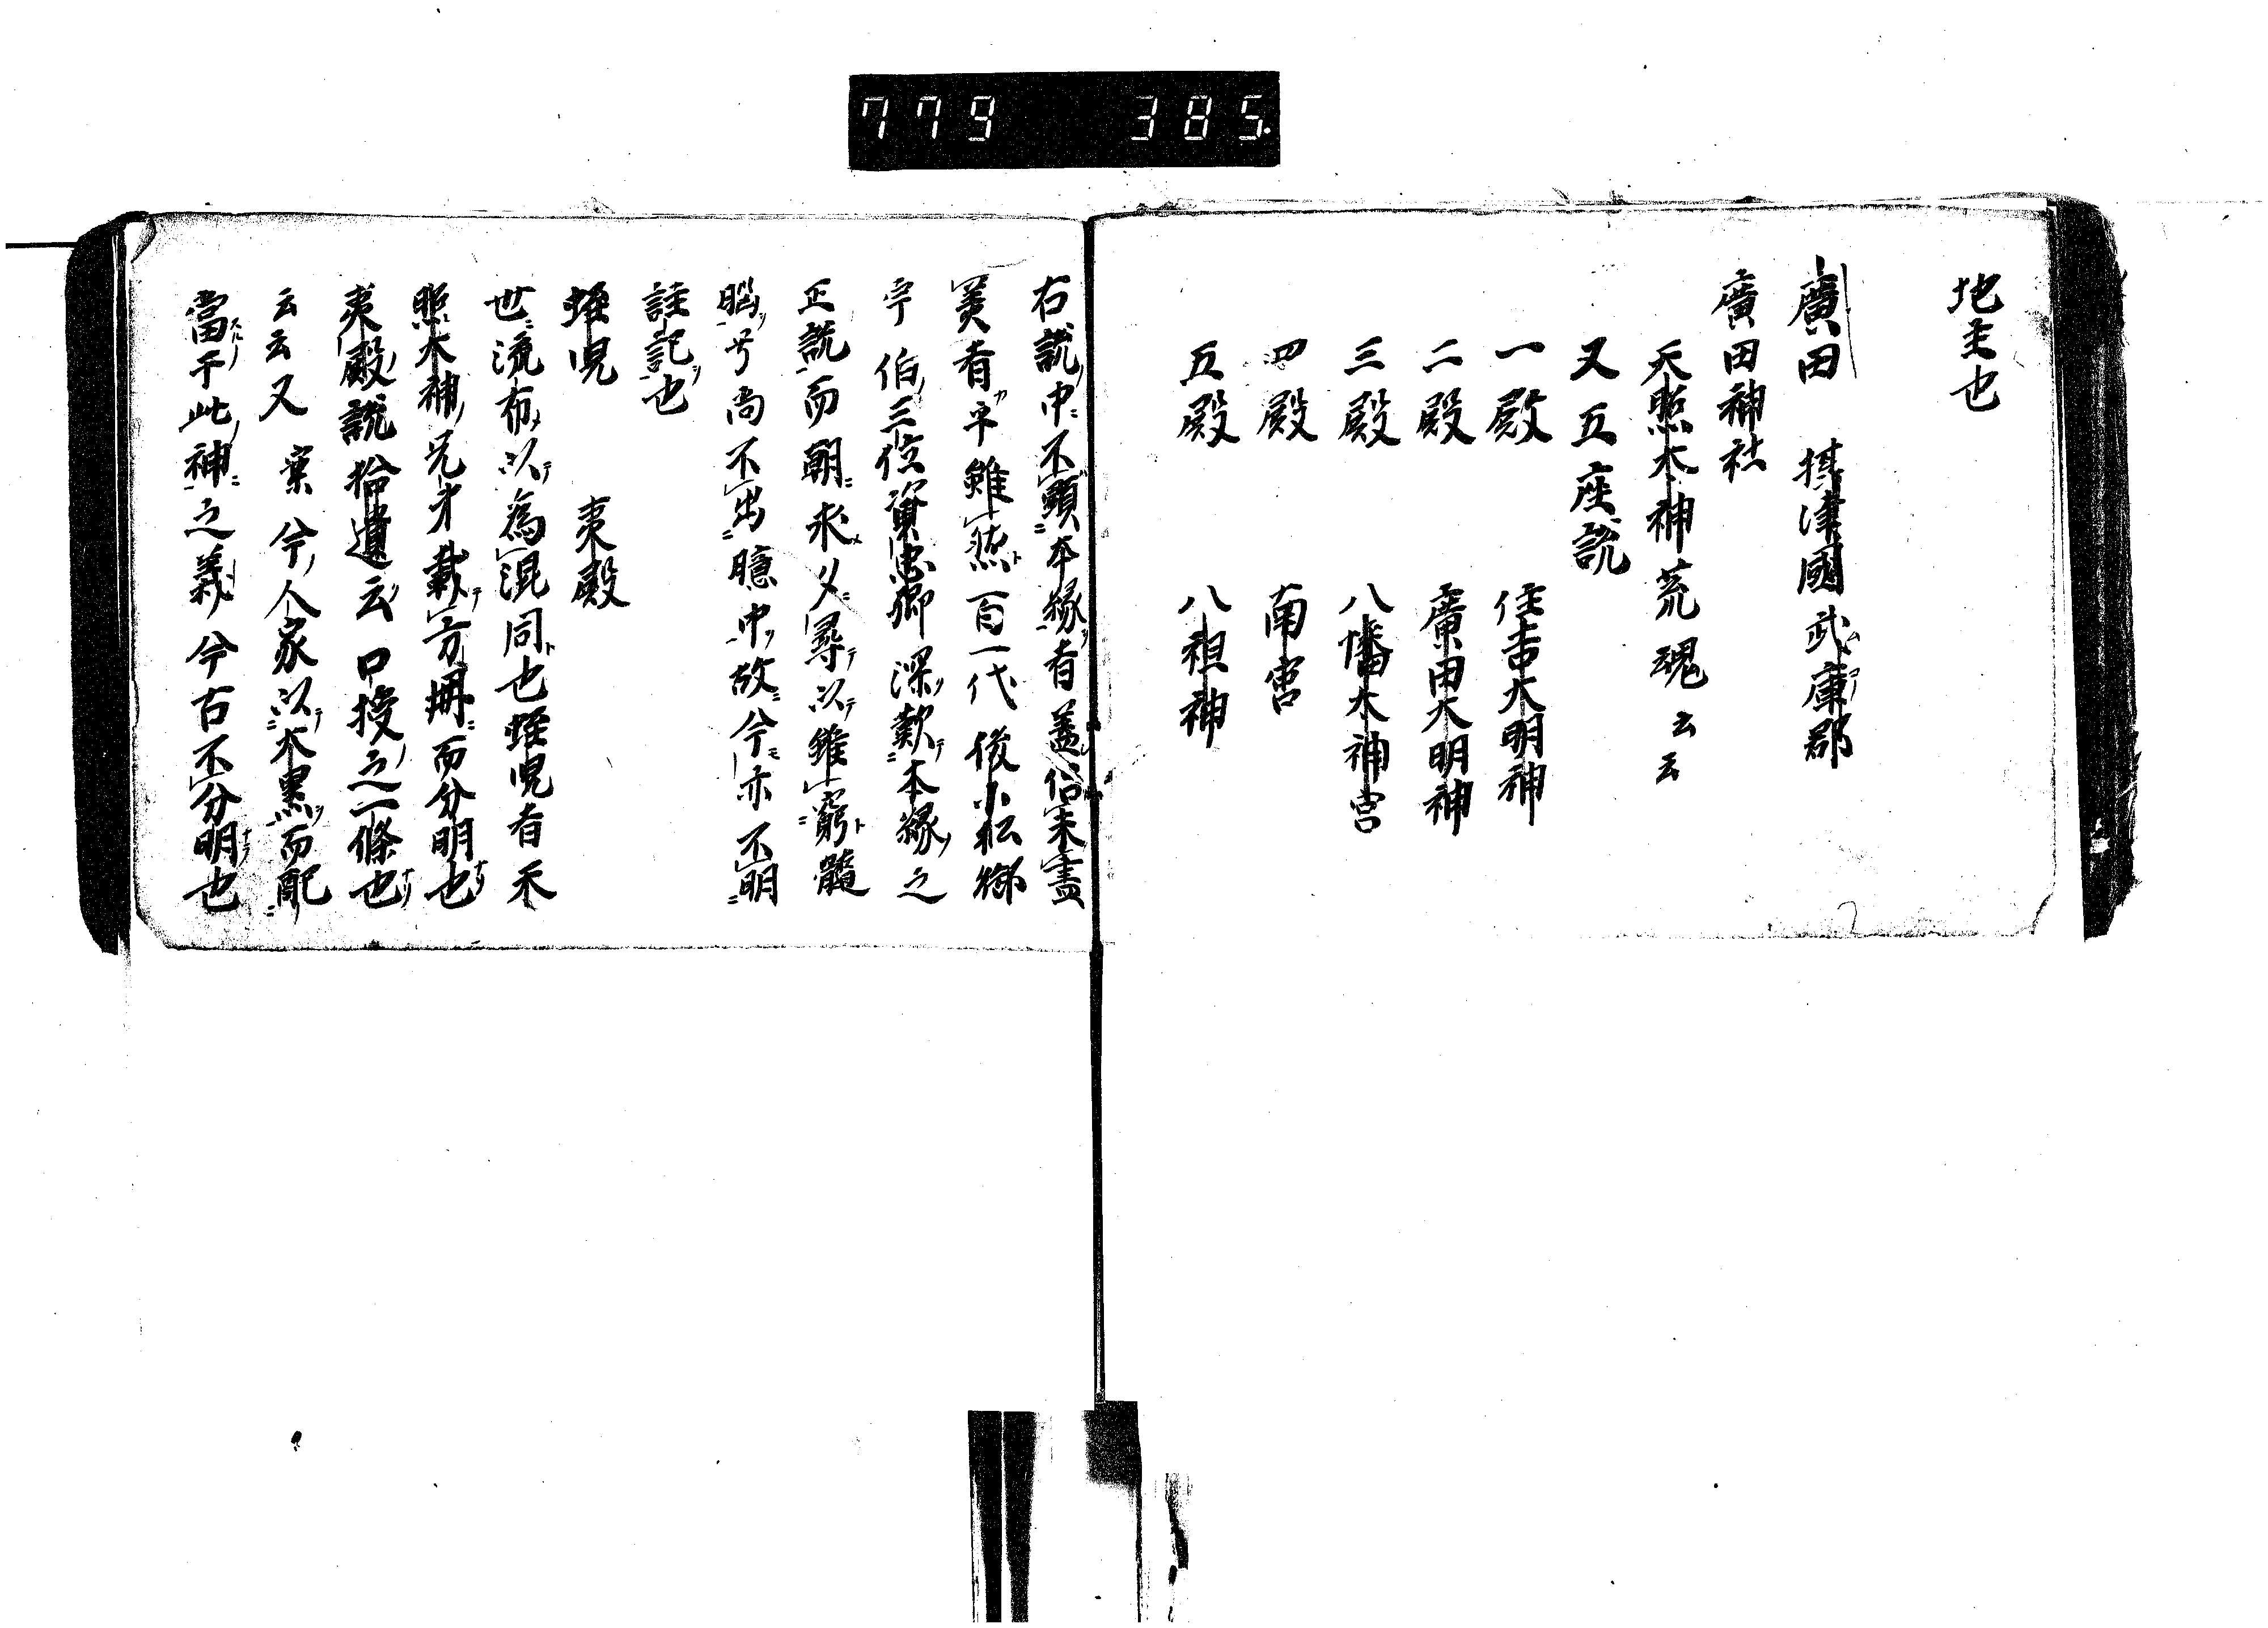 779 385
地主也
廣田 摂津國武庫郡
廣田神社
天照大神荒魂云云
又五座説
一殿 住吉大明神
二殿 廣田大明神
三殿 八幡大神宮
四殿 南宮
五殿 八祖神
右説中不顕本縁者盖信未盡
美者乎雖然百一代後小松御
宇伯三位資忠卿深歎本縁之
正説而朝求夕尋以雖窮髓
脳兮尚不出臆中故今亦不明
註記也
蛭児 夷殿
世流布以為混同也蛭児者天
照大神兄弟載方冊而分明也
夷殿説拾遺云口授之一條也
云云又案今人家以大黒而配
當于此神之義今古不分明也